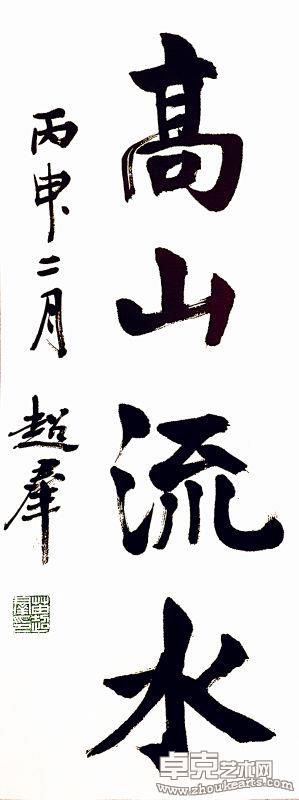 髙山流水
丙申二月 超羣
卓克艺术网
www.zhoukearts.com